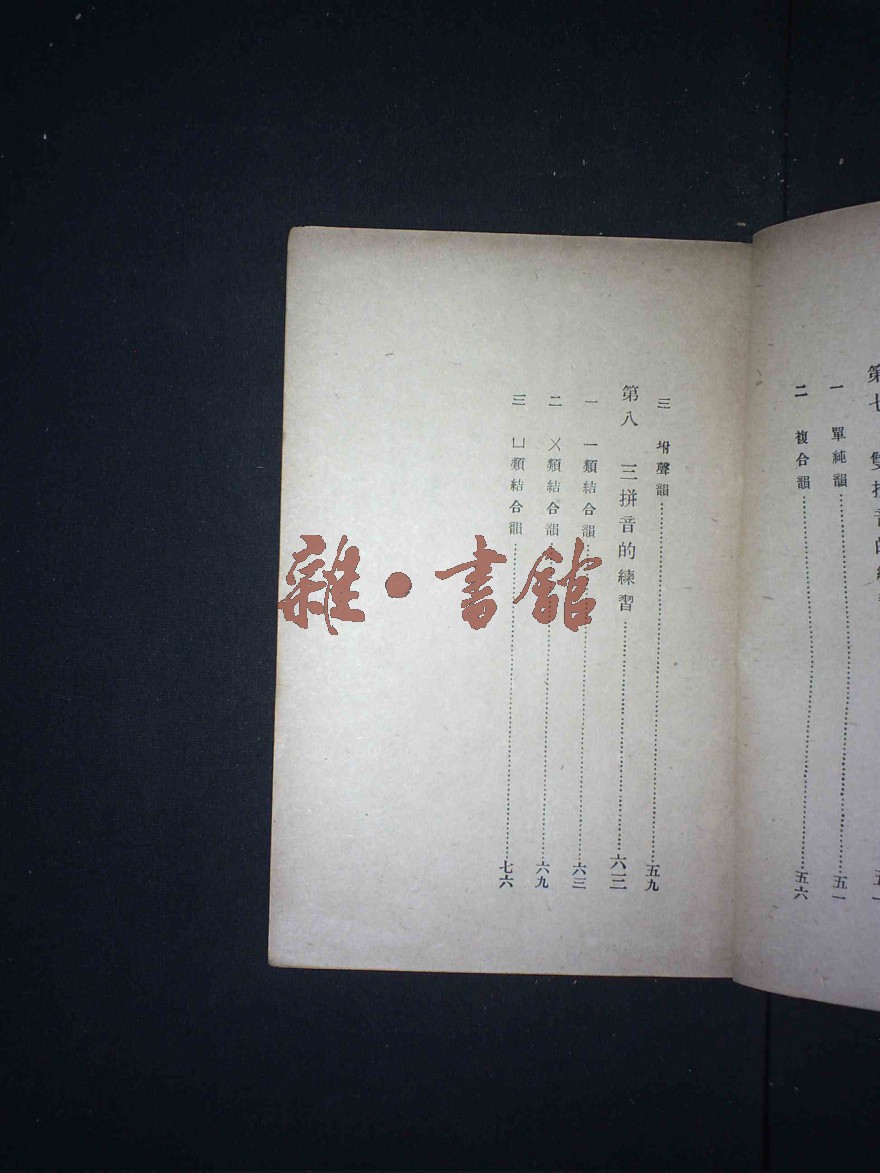 第七 雙拼音的練
五一
一 單純韻 五一
二 複合韻 五六
三 坿聲韻 五九
第八 三拼音的練習 六三
一 一類結合韻 六三
二 ㄨ類結合韻 六九
三 ㄩ類結合韻 七六
雜·書館